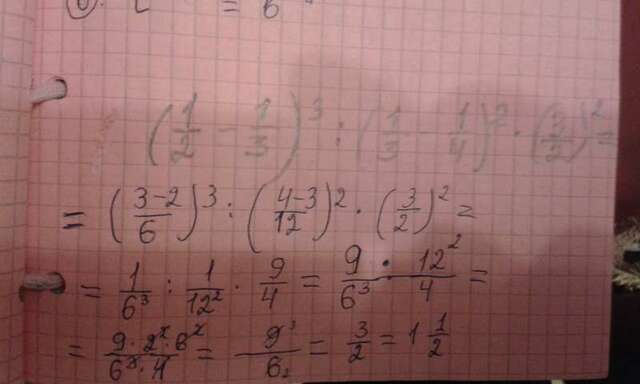 = 6
(1/2 - 1/3)^3 : (1/3 - 1/4)^2 · (3/2)^2 =
= (3-2/6)^3 : (4-3/12)^2 · (3/2)^2 =
= 1/6^3 : 1/12^2 · 9/4 = 9/6^3 · 12^2/4 =
= 9·2^2·6^2/6^3·4 = 9/6 = 3/2 = 1 1/2